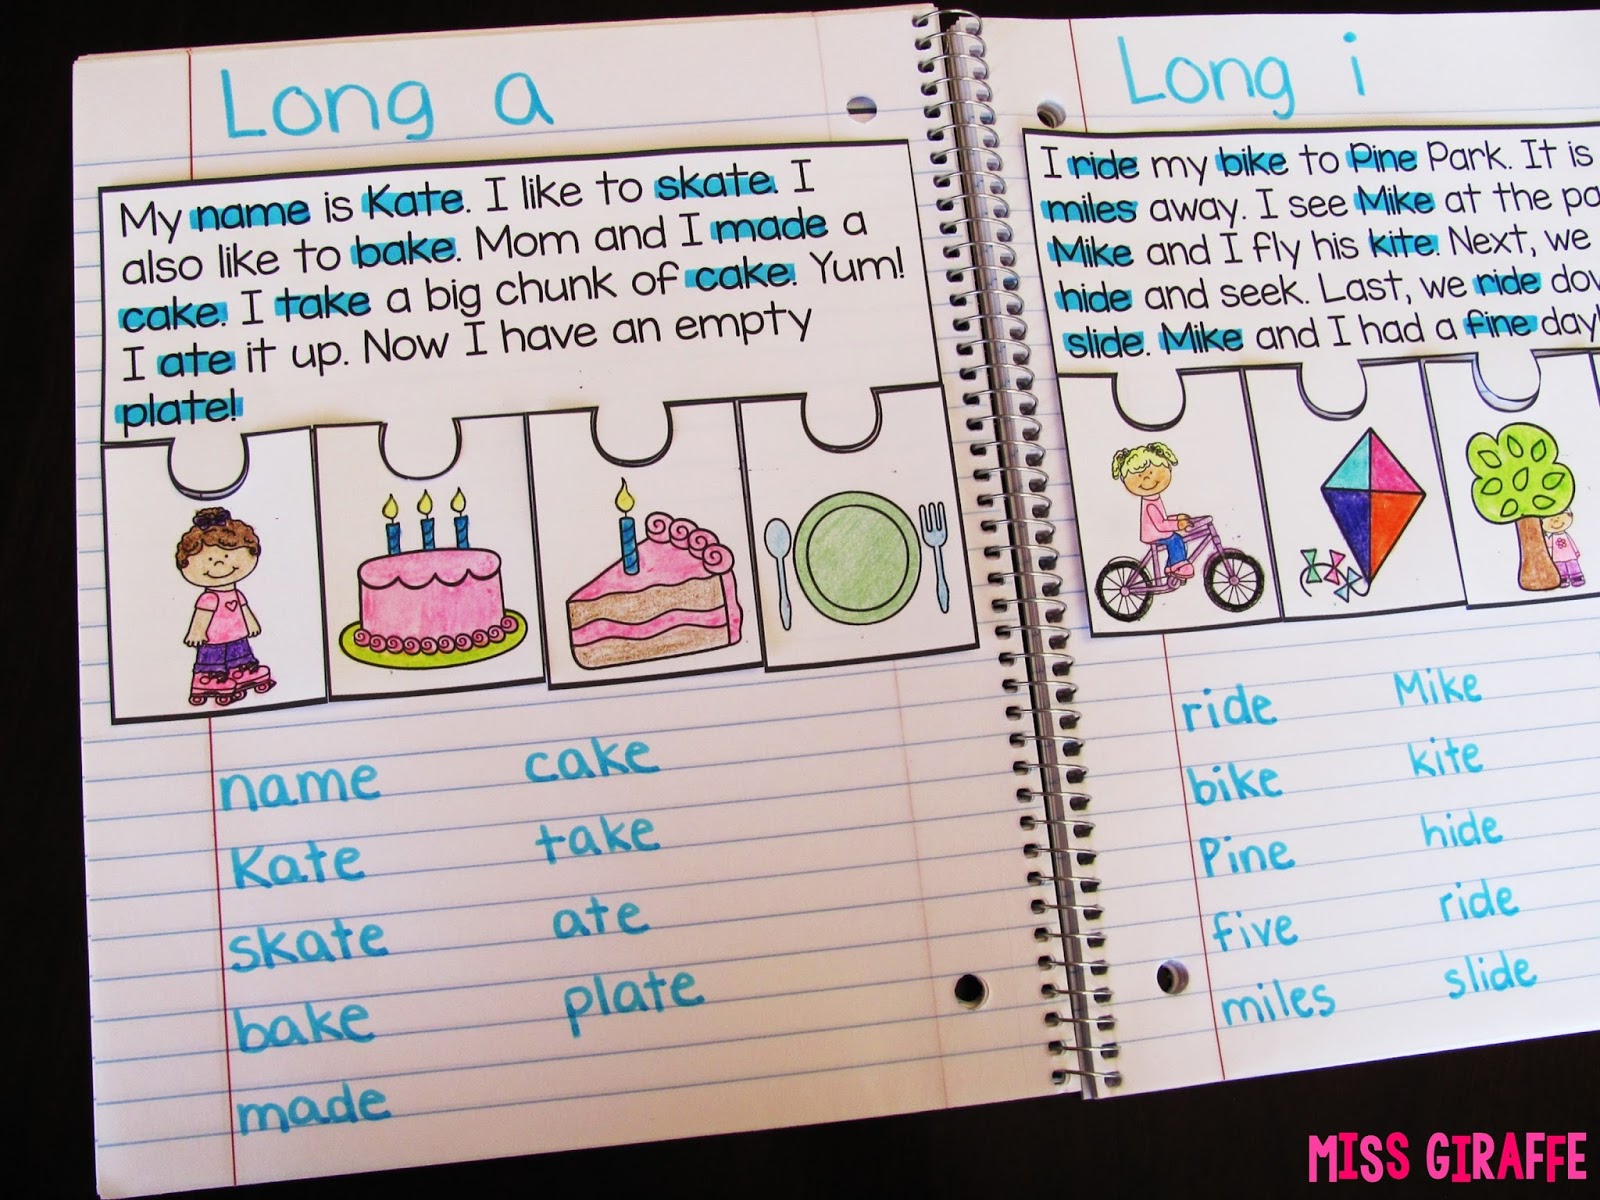 Long a
My name is Kate. I like to skate. I
also like to bake. Mom and I made a
cake. I take a big chunk of cake. Yum!
I ate it up. Now I have an empty
plate!
name cake
Kate take
skate ate
bake plate
made
Long i
I ride my bike to Pine Park. It is
miles away. I see Mike at the
Mike and I fly his kite. Next, we
hide and seek. Last, we ride
slide. Mike and I had a fine day!
ride Mike
bike kite
Pine hide
five ride
miles slide
MISS GIRAFFE